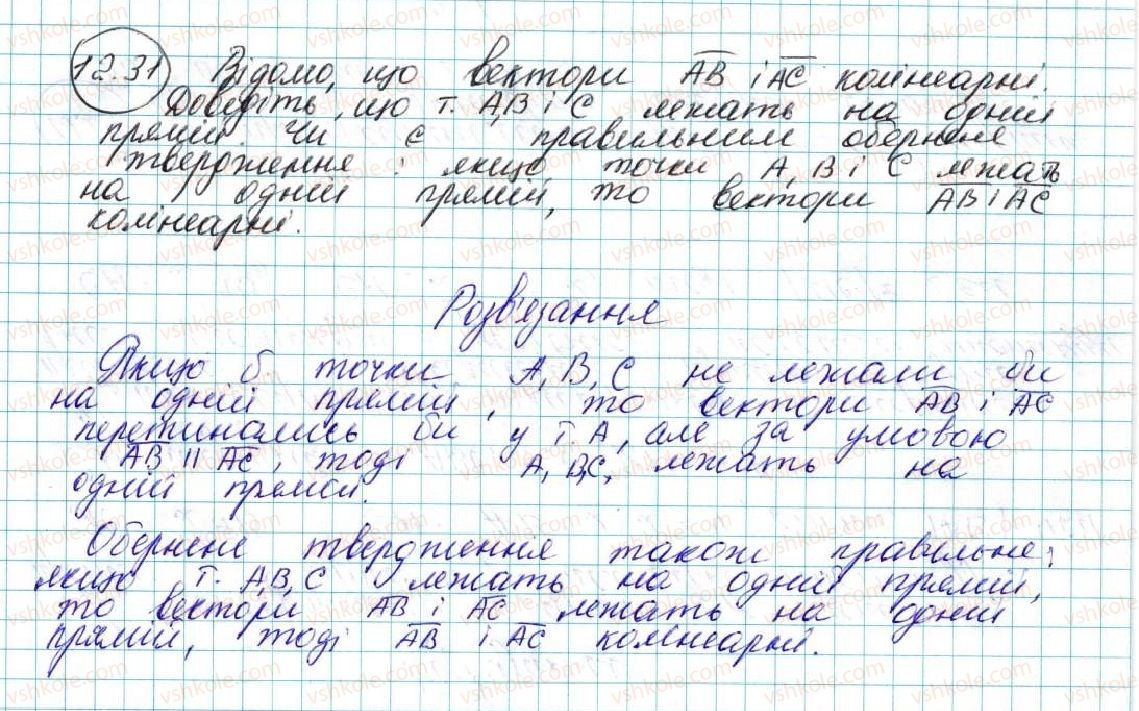 12.31 Відомо, що вектори AB і AC колінеарні.
Доведіть, що т. A,B і C лежать на одній
прямій. Чи є правильним обернене
твердження: якщо точки A, B і C лежать
на одній прямій, то вектори AB і AC
колінеарні.
Розв'язання
Якщо б точки A, B, C не лежали би
на одній прямій, то вектори AB і AC
перетинались би у т. A, але за умовою
AB || AC, тоді A, B,C, лежать на
одній прямой.
Обернене твердження також правильне:
якщо т. A,B,C лежать на одній прямій,
то вектори AB і AC лежать на одній
прямій, тоді AB і AC колінеарні.